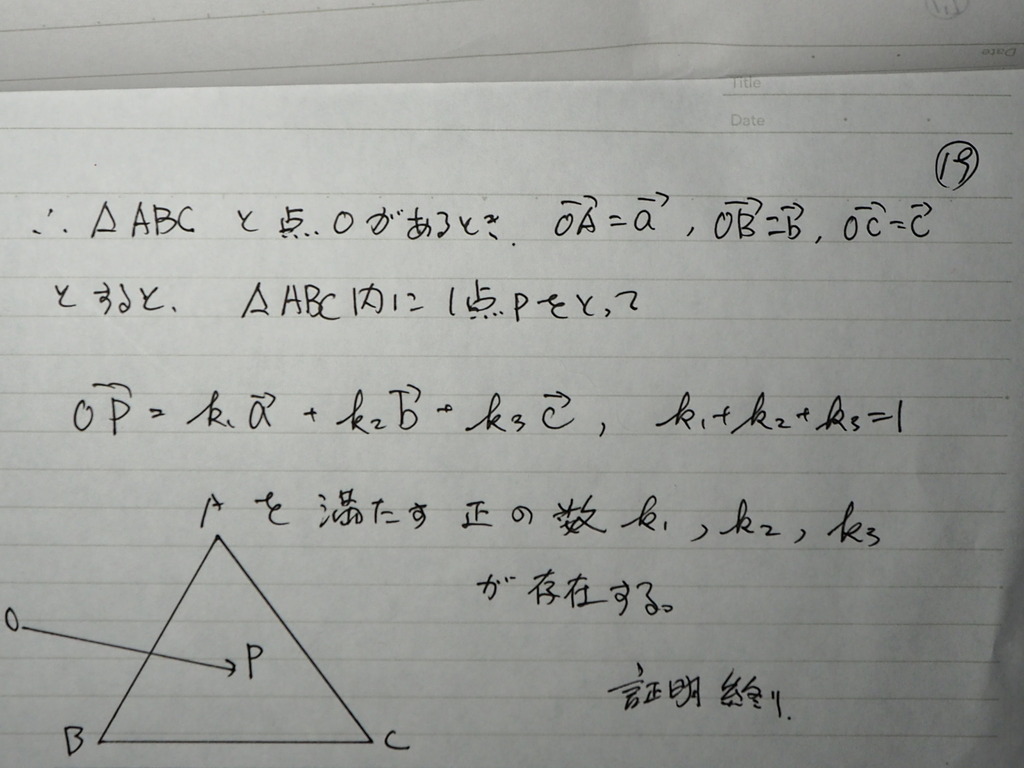 Title
Date
⑲
∴ △ABC と点Oがあるとき. OA→=a→, OB→=b→, OC→=c→
とすると、 △ABC内に1点Pをとって
OP→ = k₁a→ + k₂b→ + k₃c→, k₁+k₂+k₃=1
を満たす正の数 k₁, k₂, k₃
が存在する。
A
O
P
B
C
証明終り.